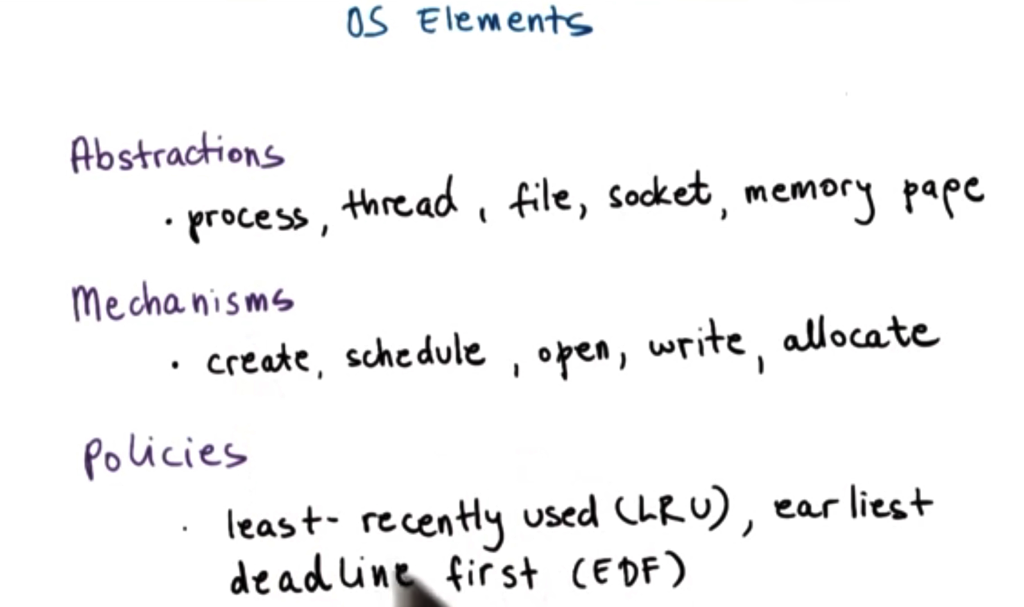 OS Elements
Abstractions
· process, thread, file, socket, memory page
Mechanisms
· create, schedule, open, write, allocate
Policies
· least-recently used (LRU), earliest
deadline first (EDF)